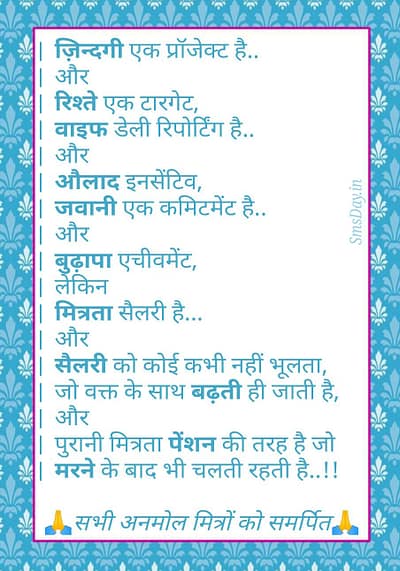 ज़िन्दगी एक प्रॉजेक्ट है..
और
रिश्ते एक टारगेट,
वाइफ डेली रिपोर्टिंग है..
और
औलाद इनसेंटिव,
जवानी एक कमिटमेंट है..
और
बुढ़ापा एचीवमेंट,
लेकिन
मित्रता सैलरी है...
और
सैलरी को कोई कभी नहीं भूलता,
जो वक्त के साथ बढ़ती ही जाती है,
और
पुरानी मित्रता पेंशन की तरह है जो
मरने के बाद भी चलती रहती है..!!
🙏सभी अनमोल मित्रों को समर्पित🙏
SmsDay.in